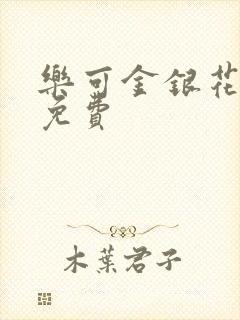 樂可金銀花
免費
木葉君子